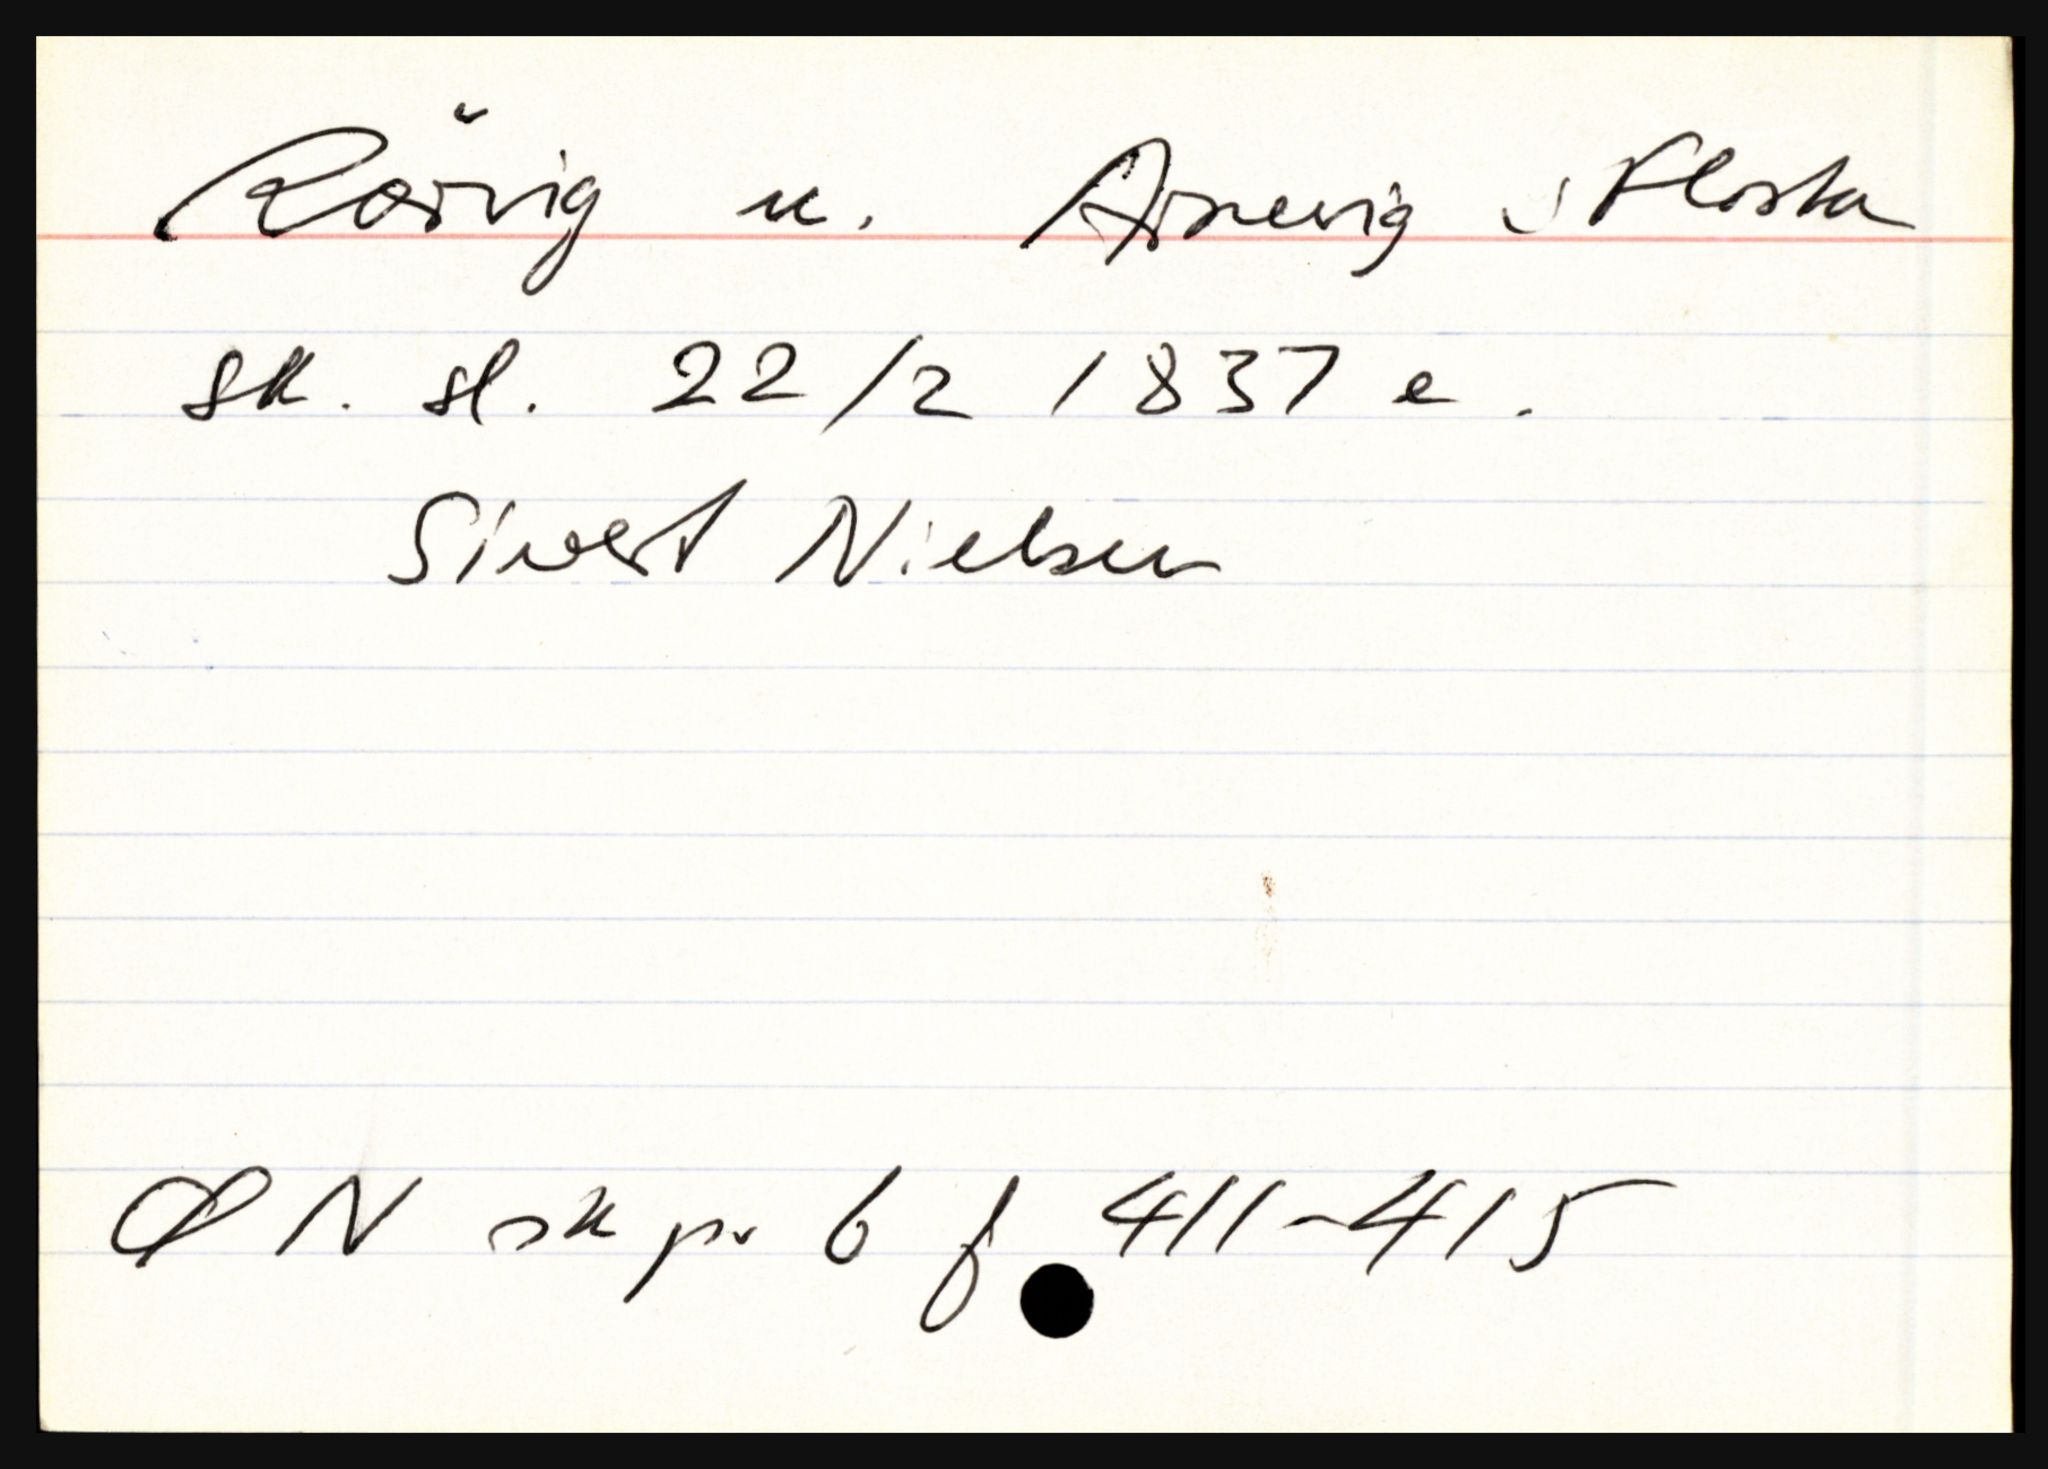 Rørvig u. Arnevig i Flosta
sk. sl. 22/2 1837 e.
Sivert Nielsen
ØN sk pr 6 f 411-415